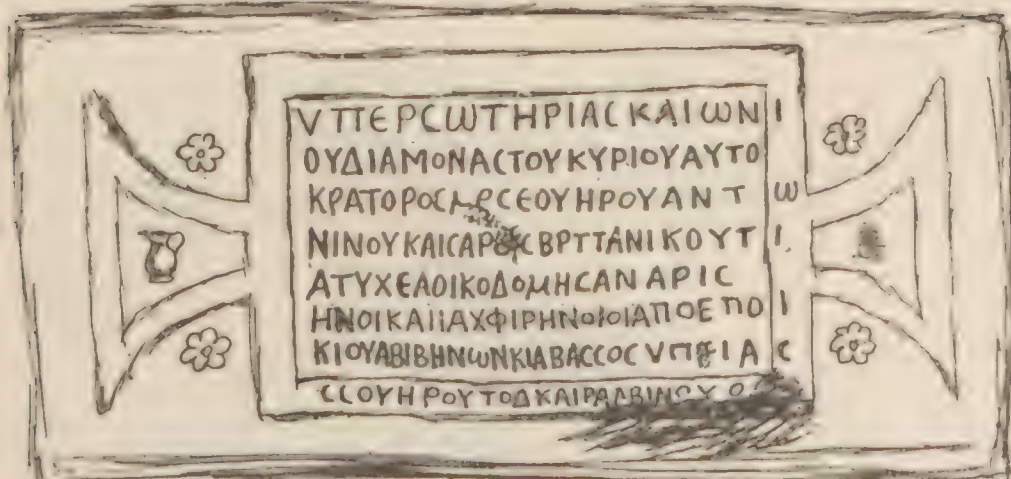 ΥΠΕΡCΩΤΗΡΙΑCΚΑΙΩΝΙ
ΟΥΔΙΑΜΟΝΑCΤΟΥΚΥΡΙΟΥΑΥΤΟ
ΚΡΑΤΟΡΟCΜΡCΕΟΥΗΡΟΥΑΝΤω
ΝΙΝΟΥΚΑΙCΑΡΟCΒΡΤΤΑΝΙΚΟΥΤΙ
ΑΤΥΧΕΑΟΙΚΟΔΟΜΗCΑΝΑΡΙC
ΗΝΟΙΚΑΙΙΑΧΦΙΡΗΝΟΙΟΙΑΠΟΕΠΟΙ
ΚΙΟΥΑΒΙΒΗΝωΝΚΙΑΒΑCCΟC
CCΟΥΗΡΟΥΤΟΔΚΑΙΡΑΛΒΙΝΟΥ